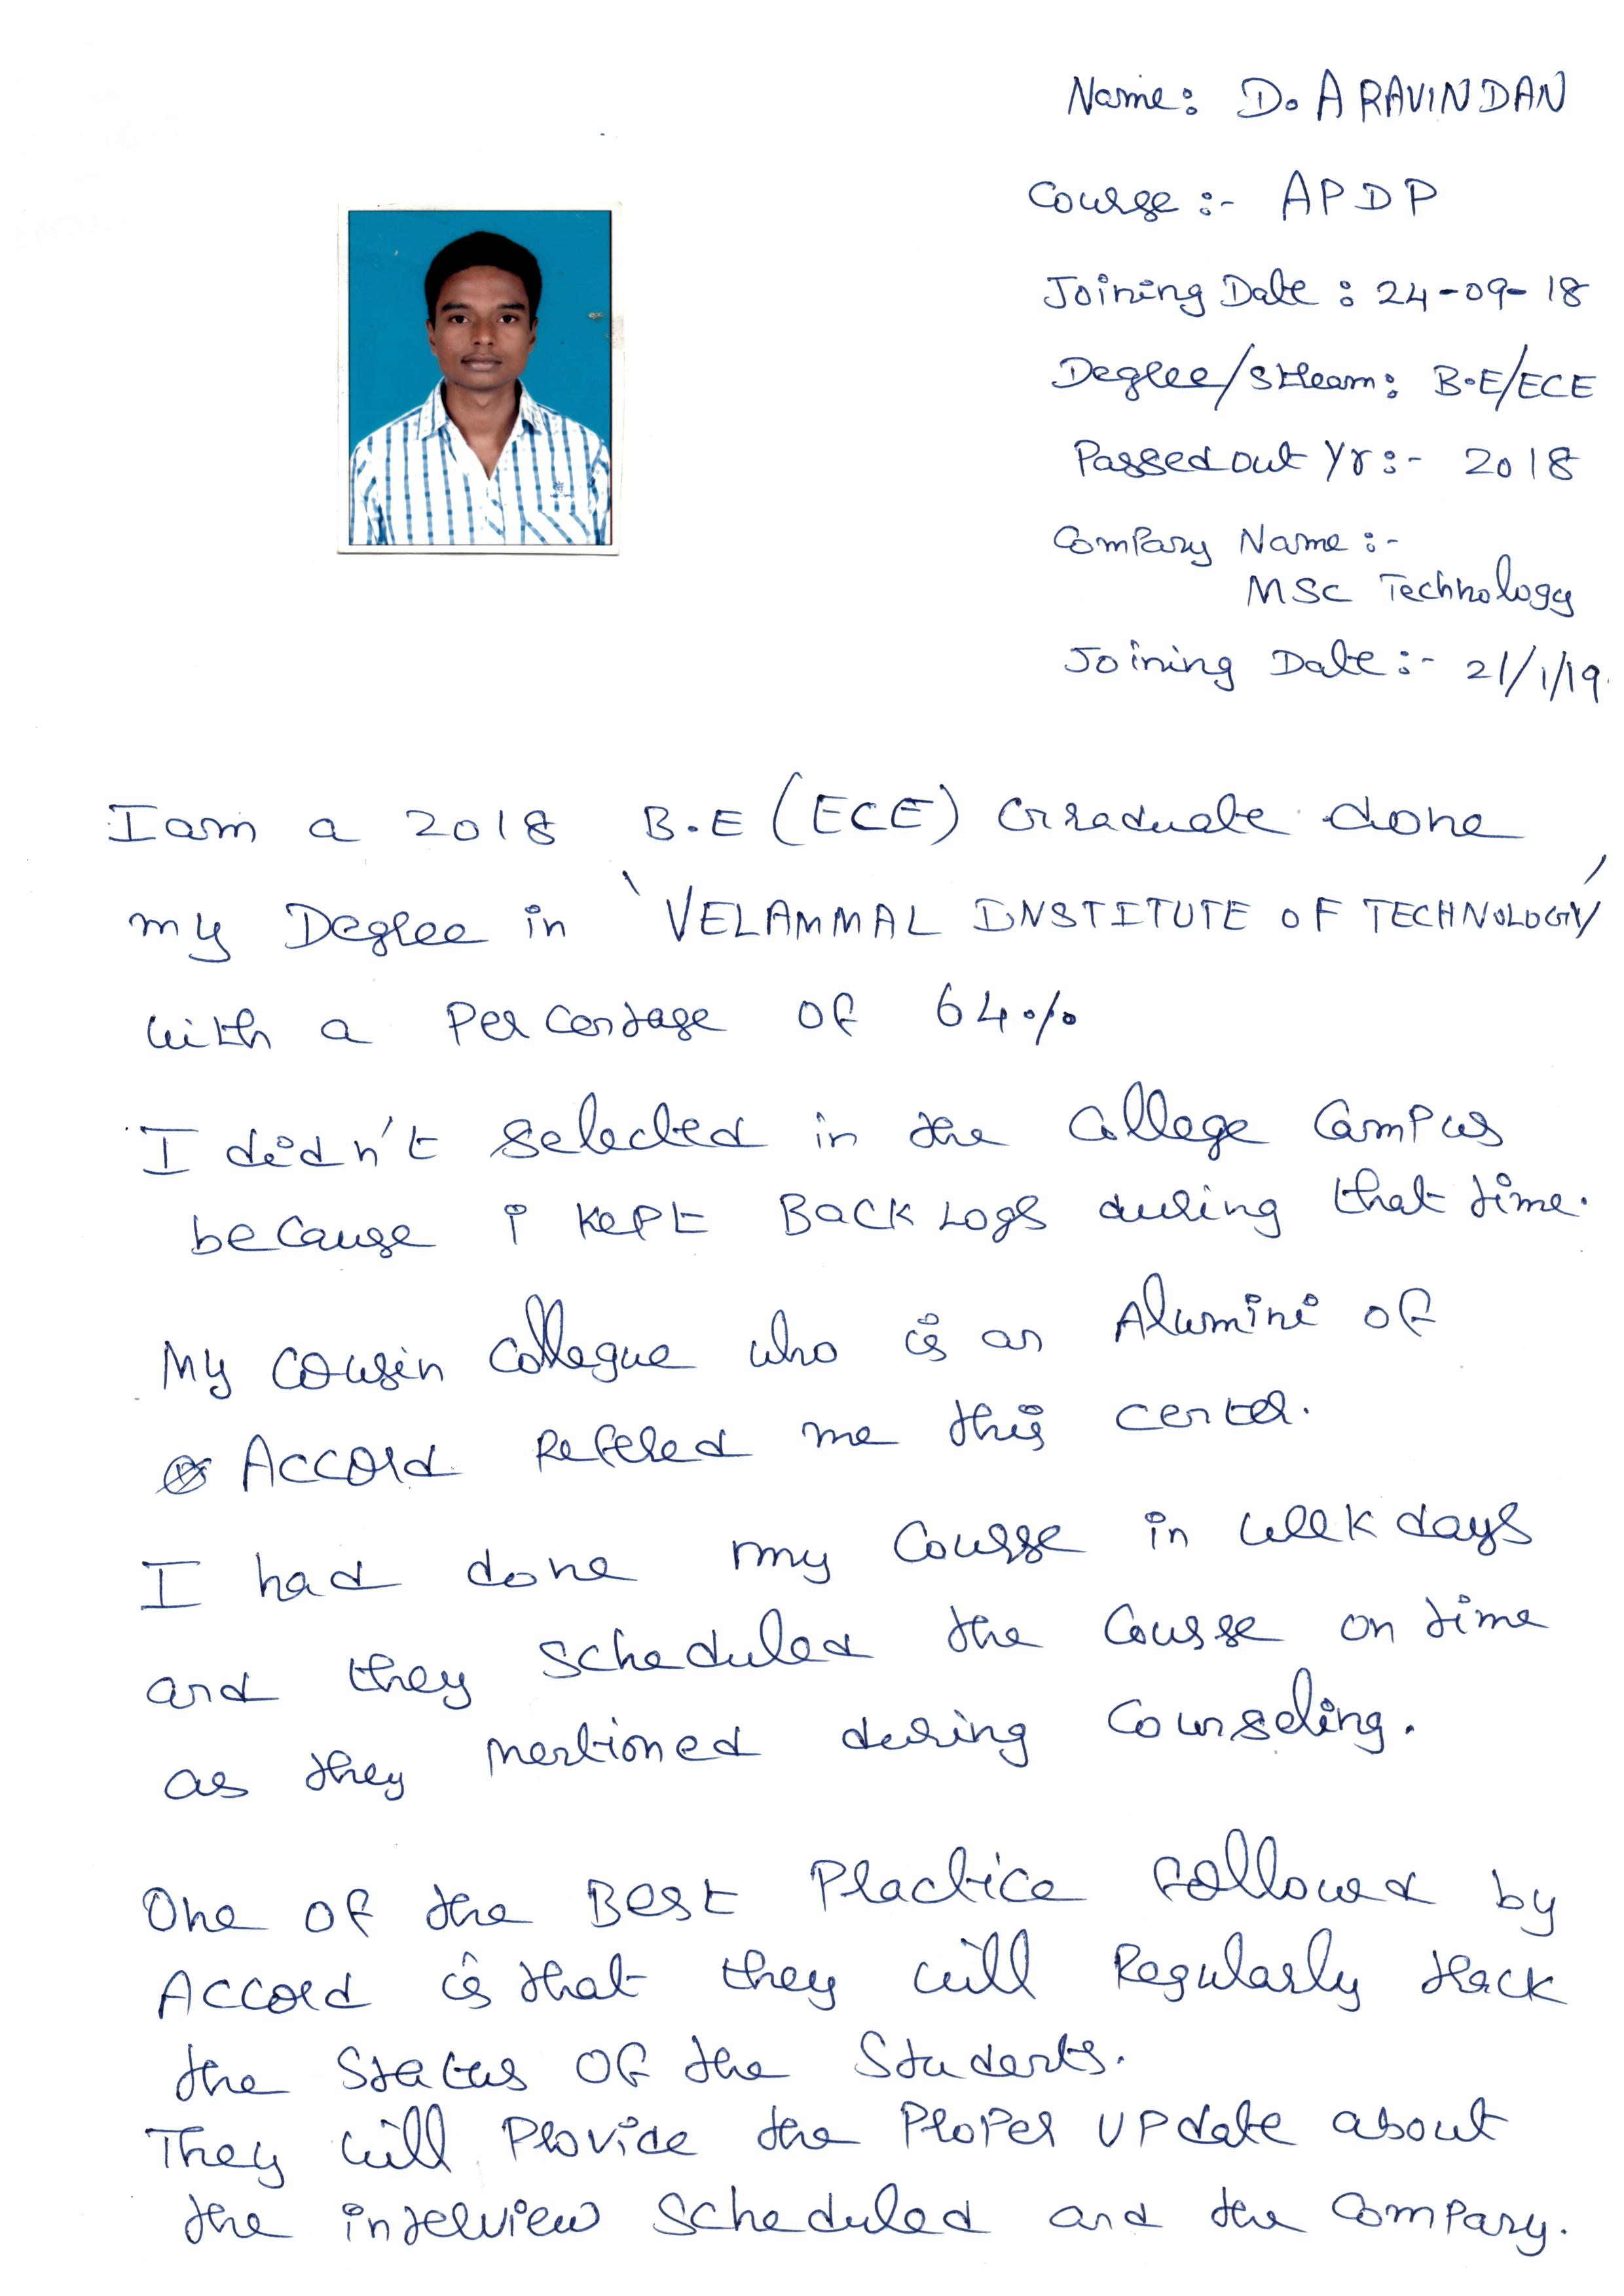 Name: D. ARAVINDAN
Course :- APDP
Joining Date : 24-09-18
Degree/Stream: B.E/ECE
Passed out Yr :- 2018
Company Name :-
MSC Technology
Joining Date :- 21/1/19.
I am a 2018 B.E (ECE) Graduate done
my Degree in 'VELAMMAL INSTITUTE OF TECHNOLOGY'
with a Percentage of 64%
I didn't selected in the College Campus
because i kept Back Logs during that time.
My cousin collegue who is an Alumini of
Accord Refered me this center.
I had done my Course in week days
and they scheduled the Course on time
as they mentioned during Counseling.
One of the Best Practice followed by
Accord is that they will Regularly track
the Status of the Students.
They will Provide the Proper update about
the interview Scheduled and the Company.